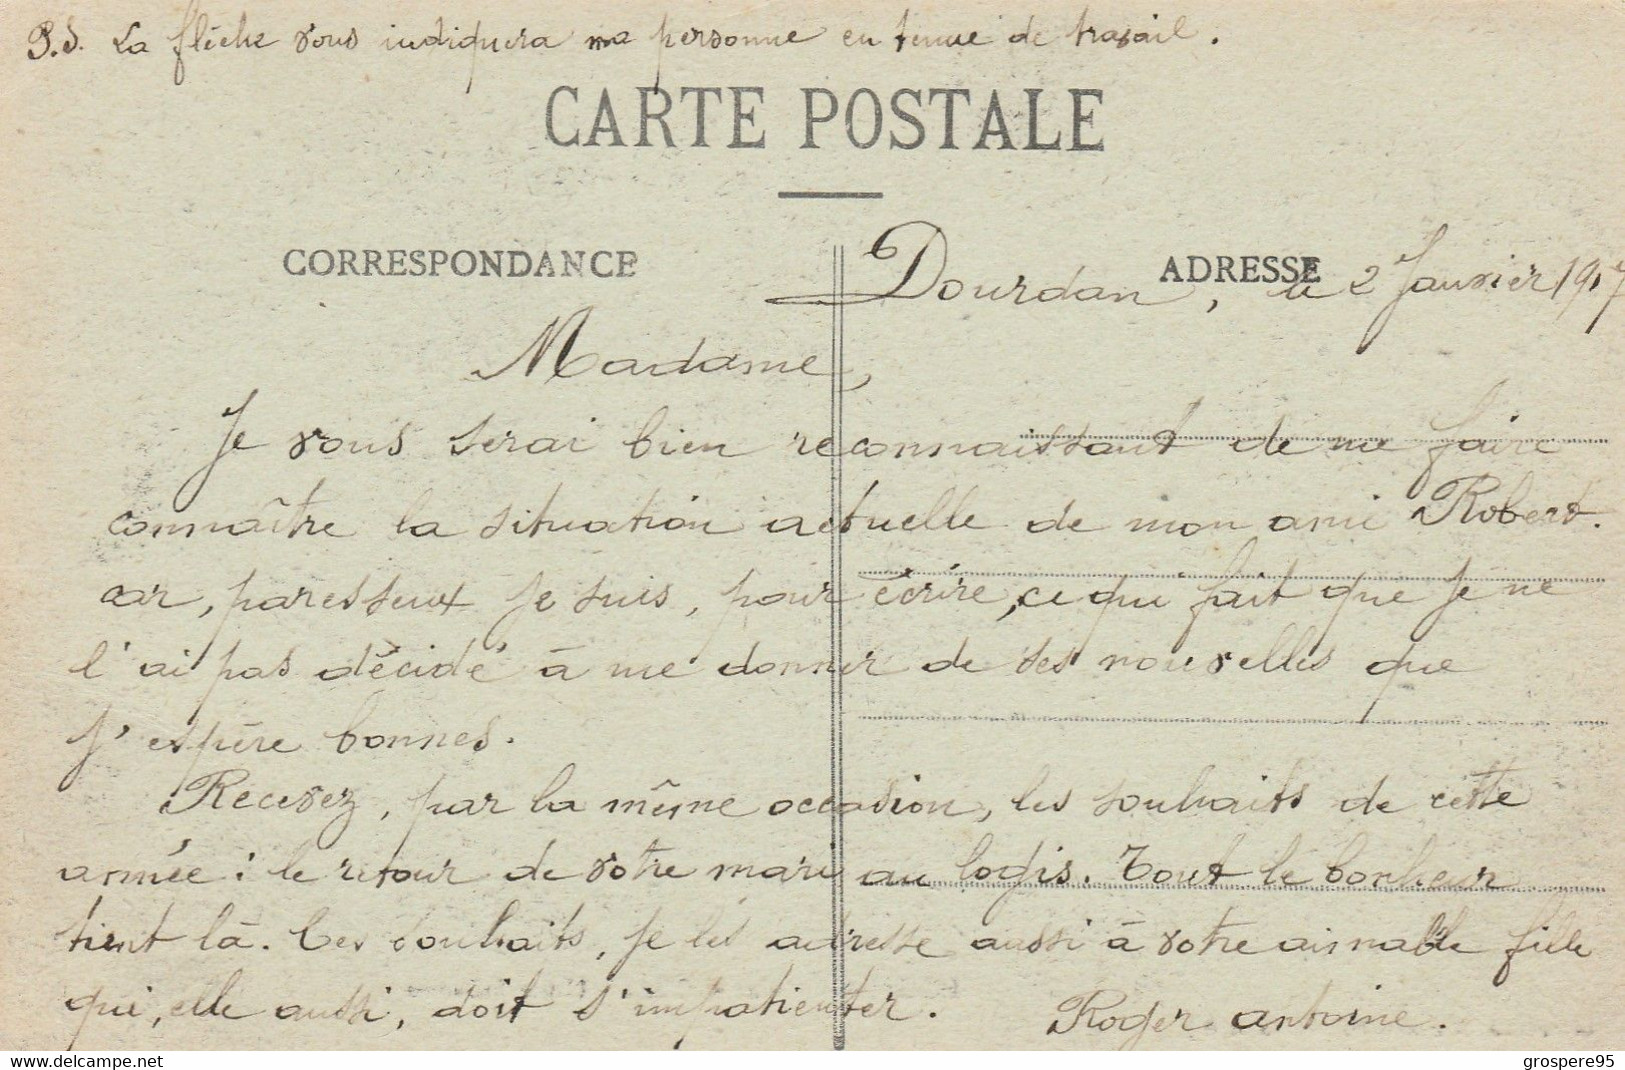 P.S. La flèche vous indiquera ma personne en tenue de travail.
CARTE POSTALE
CORRESPONDANCE
ADRESSE
Dourdan, le 2 Janvier 1917
Madame,
Je vous serai bien reconnaissant de me faire
connaître la situation actuelle de mon ami Robert.
car, paresseux je suis, pour écrire, ce qui fait que je ne
l'ai pas décidé à me donner de ses nouvelles que
j'espère bonnes.
Recevez, par la même occasion, les souhaits de cette
année : le retour de votre mari au logis. Tout le bonheur
tient là. Ces souhaits, je les adresse aussi à votre aimable fille
qui, elle aussi, doit s'impatienter.
Roger Antoine.
www.delcampe.net
grospere95